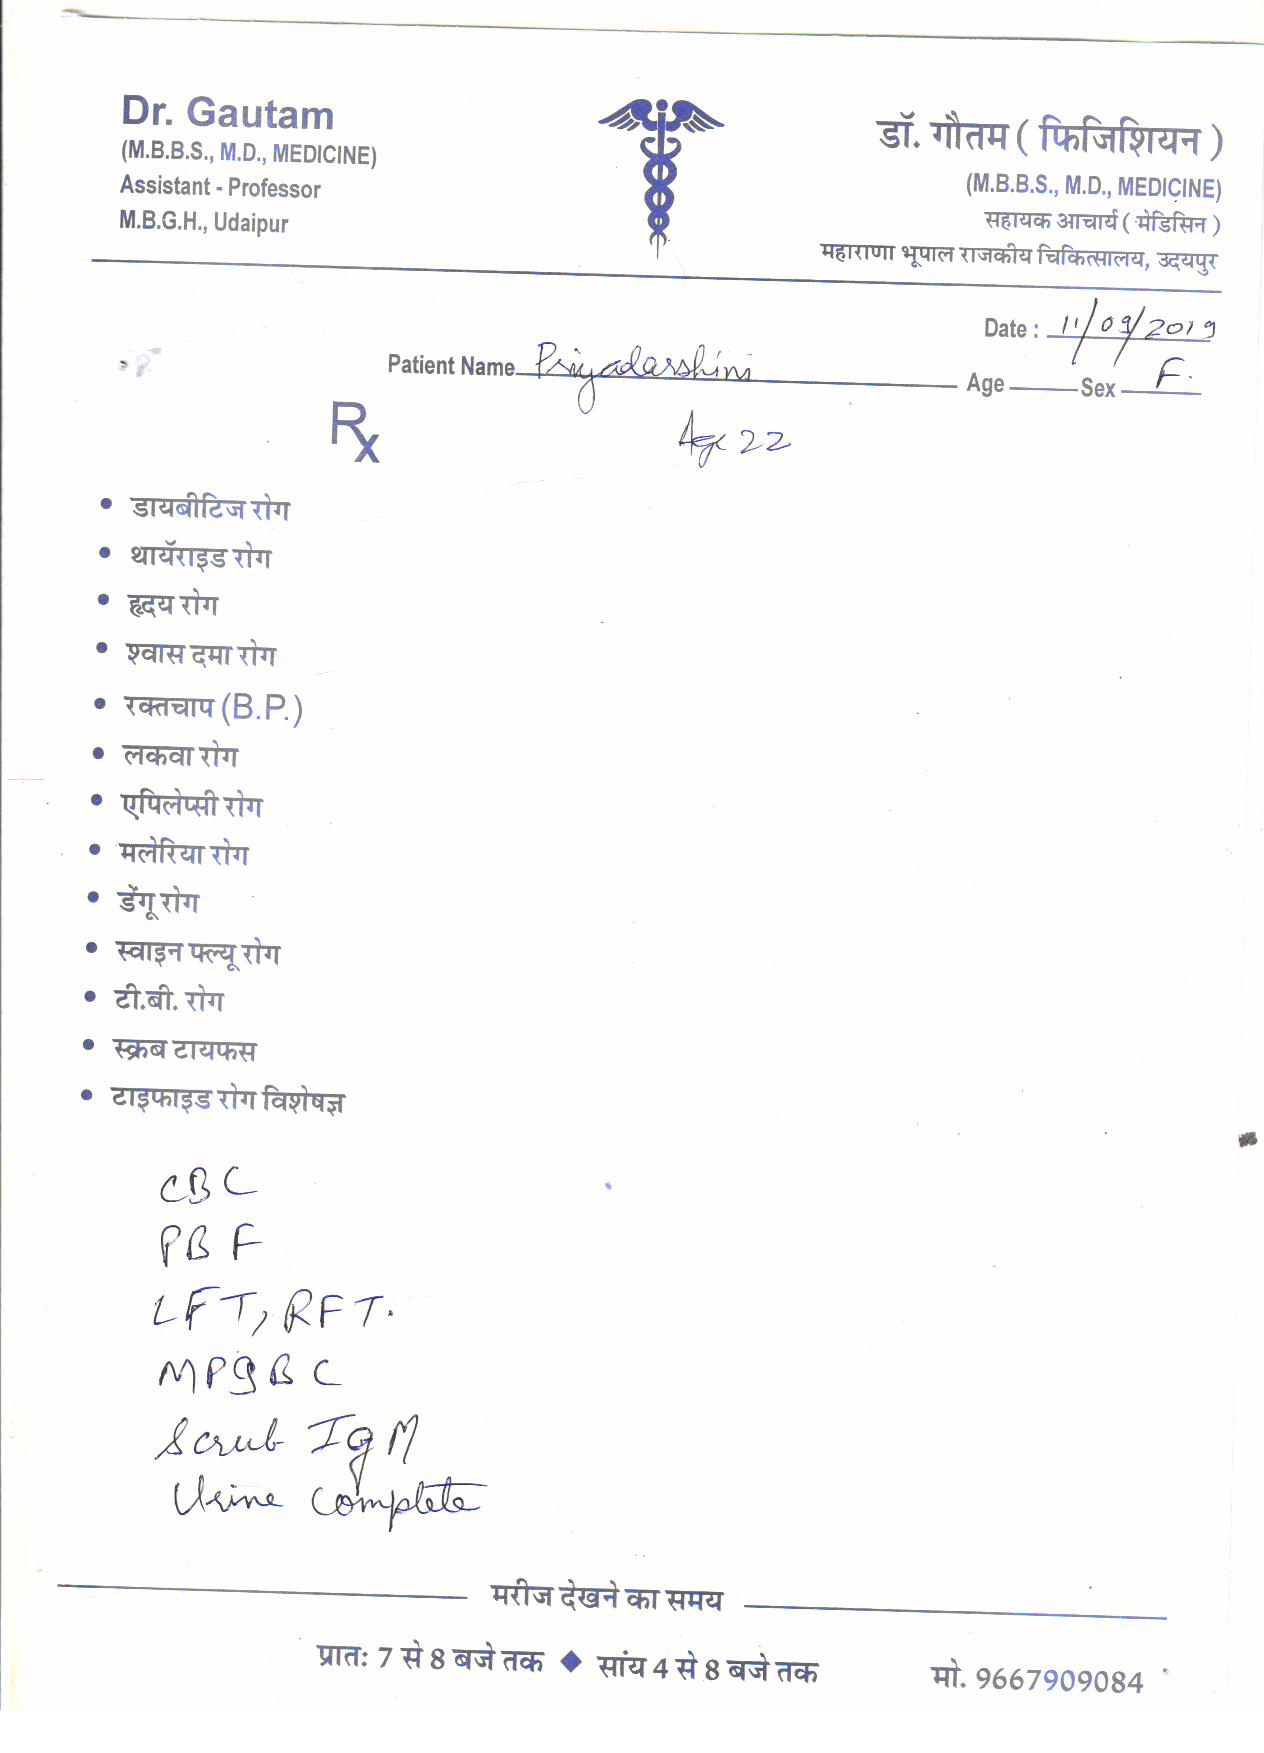 Dr. Gautam
(M.B.B.S., M.D., MEDICINE)
Assistant - Professor
M.B.G.H., Udaipur
डॉ. गौतम ( फिजिशियन )
(M.B.B.S., M.D., MEDICINE)
सहायक आचार्य ( मेडिसिन )
महाराणा भूपाल राजकीय चिकित्सालय, उदयपुर
Date : 11/09/2019
Patient Name Priyadarshini Age Sex F.
Rx
Age 22
• डायबीटिज रोग
• थायॅराइड रोग
• हृदय रोग
• श्वास दमा रोग
• रक्तचाप (B.P.)
• लकवा रोग
• एपिलेप्सी रोग
• मलेरिया रोग
• डेंगू रोग
• स्वाइन फ्ल्यू रोग
• टी.बी. रोग
• स्क्रब टायफस
• टाइफाइड रोग विशेषज्ञ
CBC
PBF
LFT, RFT.
MPQBC
Scrub IgM
Urine Complete
मरीज देखने का समय
प्रातः 7 से 8 बजे तक ◆ सांय 4 से 8 बजे तक
मो. 9667909084